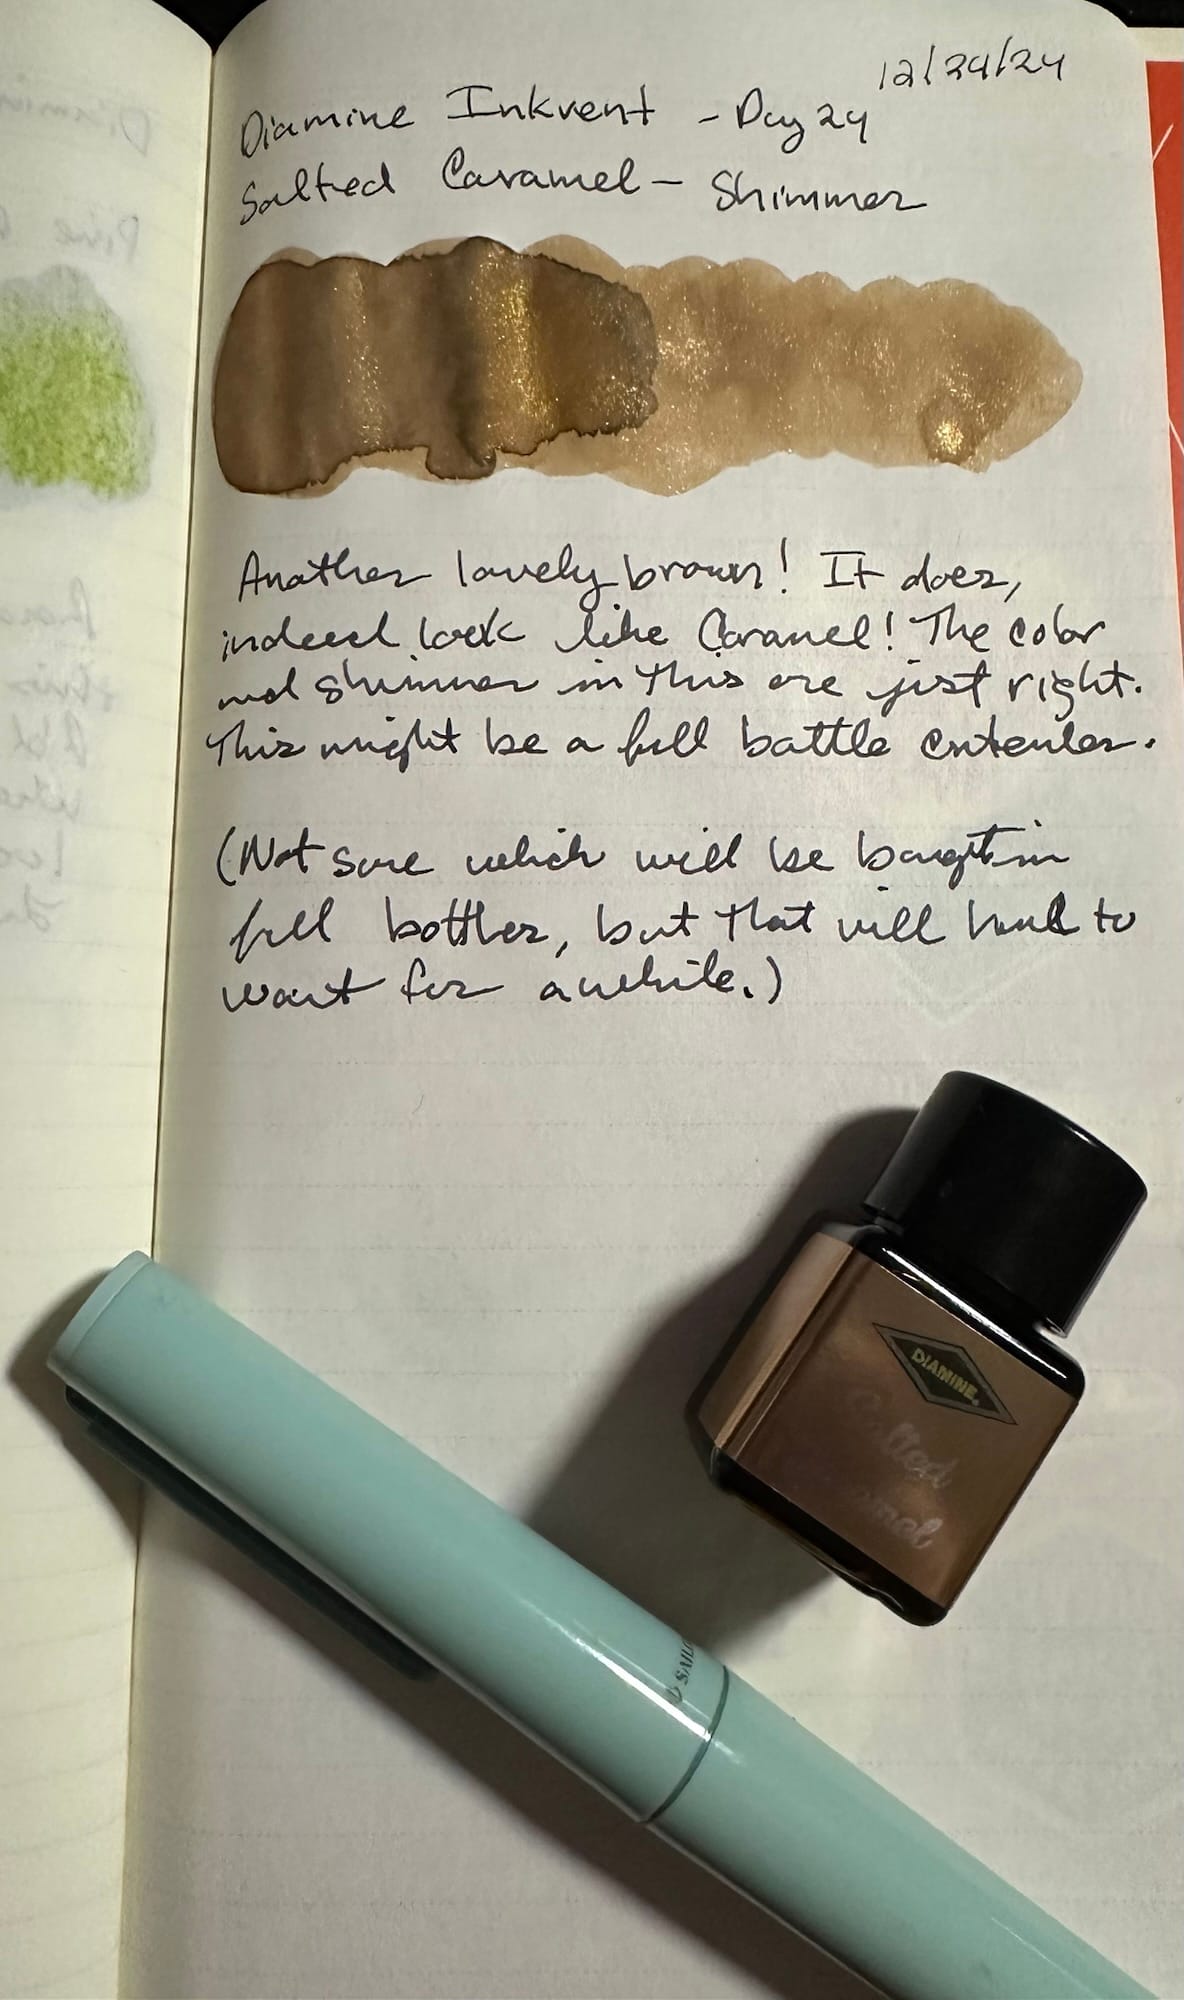 12/24/24
Diamine Inkvent - Day 24
Salted Caramel - Shimmer
Another lovely brown! It does,
indeed look like Caramel! The color
and shimmer in this are just right.
This might be a full battle contender.
(Not sure which will be bought in
full bottles, but that will have to
wait for awhile.)
DIAMINE
Salted
SAILO